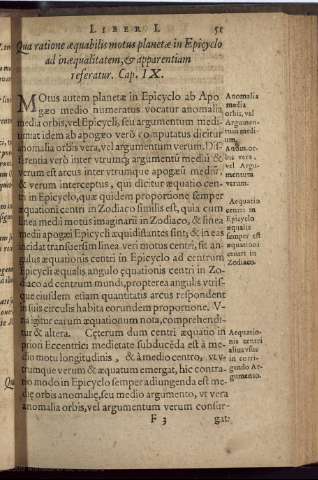 LIBER I. 51
Qua ratione æquabilis motus planetæ in Epicyclo
ad inæqualitatem, & apparentiam
referatur. Cap. IX.
MOtus autem planetæ in Epicyclo ab Apo
gæo medio numeratus vocatur anomalia
media orbis, vel Epicycli, seu argumentum medium
at idem ab apogæo verò computatus dicitur
anomalia orbis vera, vel argumentum verum. Dif
ferentia verò inter vtrumq; argumentũ mediũ &
verum est arcus inter vtrumque apogæũ mediũ,
& verum interceptus, qui dicitur æquatio cen
tri in Epicyclo, quæ quidem proportione semper
æquationi centri in Zodiaco similis est, quia cum
linea medij motus imaginarij in Zodiaco, & linea
medij apogæi Epicycli æquidistantes sint, & in eas
incidat transuersim linea veri motus centri, fit an
gulus æquationis centri in Epicyclo ad centrum
Epicycli æqualis angulo çquationis centri in Zo
diaco ad centrum mundi, propterea angulis vtris
que eiusdem etiam quantitatis arcus respondent
in suis circulis habita eorundem proportione. V
na igitur earum æquationum nota, comprehendi
tur & altera. Cęterum dum centri æquatio in
priori Eccentrici medietate subducēda est à me
dio motu longitudinis, & à medio centro, vt v
trumque verum & æquatum emergat, hic contra
rio modo in Epicyclo semper adiungenda est me
diç orbis anomalię, seu medio argumento, vt vera
anomalia orbis, vel argumentum verum consur-
F 3 gat:
Anomalia
media
orbis, vel
Argumen-
tum medi
um.
orbis vera,
vel Argu-
mentum
verum.
Aequatio
centri in
Epicyclo
æqualis
semper est
æquationi
centri in
Zodiaco.
Aequatio-
nis centri
alius vsus
in corri-
gendo Ar-
gumento.
Qu